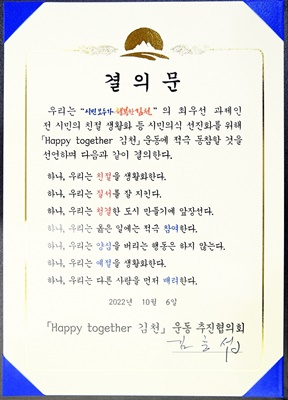 결 의 문
우리는 "시민모두가 행복한 김천" 의 최우선 과제인
전 시민의 친절 생활화 등 시민의식 선진화를 위해
「Happy together 김천」운동에 적극 동참할 것을
선언하며 다음과 같이 결의한다.
하나, 우리는 친절을 생활화한다.
하나, 우리는 질서를 잘 지킨다.
하나, 우리는 청결한 도시 만들기에 앞장선다.
하나, 우리는 옳은 일에는 적극 참여한다.
하나, 우리는 양심을 버리는 행동은 하지 않는다.
하나, 우리는 예절을 생활화한다.
하나, 우리는 다른 사람을 먼저 배려한다.
2022년 10월 6일
「Happy together 김천」 운동 추진협의회